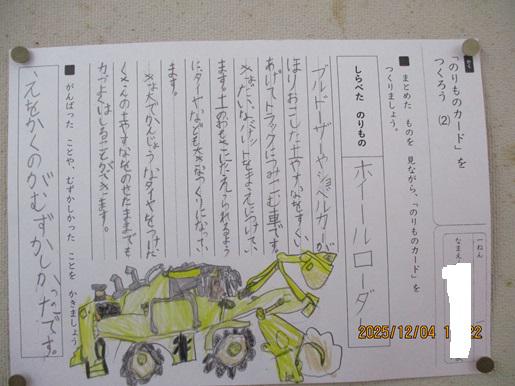 かく
「のりものカード」を
つくろう (2)
ねん
なまえ
■ まとめた ものを 見ながら、「のりものカード」を
つくりましょう。
しらべた のりもの
ホイールローダー
ブルドーザーやショベルカーが
ほりおこした土やすなをすくい
あげてトラックにつみこむ車です。
大きなバケットをまえにつけて、
土のおもさにたえられるよう
に、タイヤなども大きなつくりになってい
ます。
大きくてがんじょうなタイヤをつけて
たくさんの土やすなをのせたままでも
力づよくはしることができます。
■ がんばった ことや、むずかしかった ことを かきましょう。
えをかくのがむずかしかったです。
2025/12/04